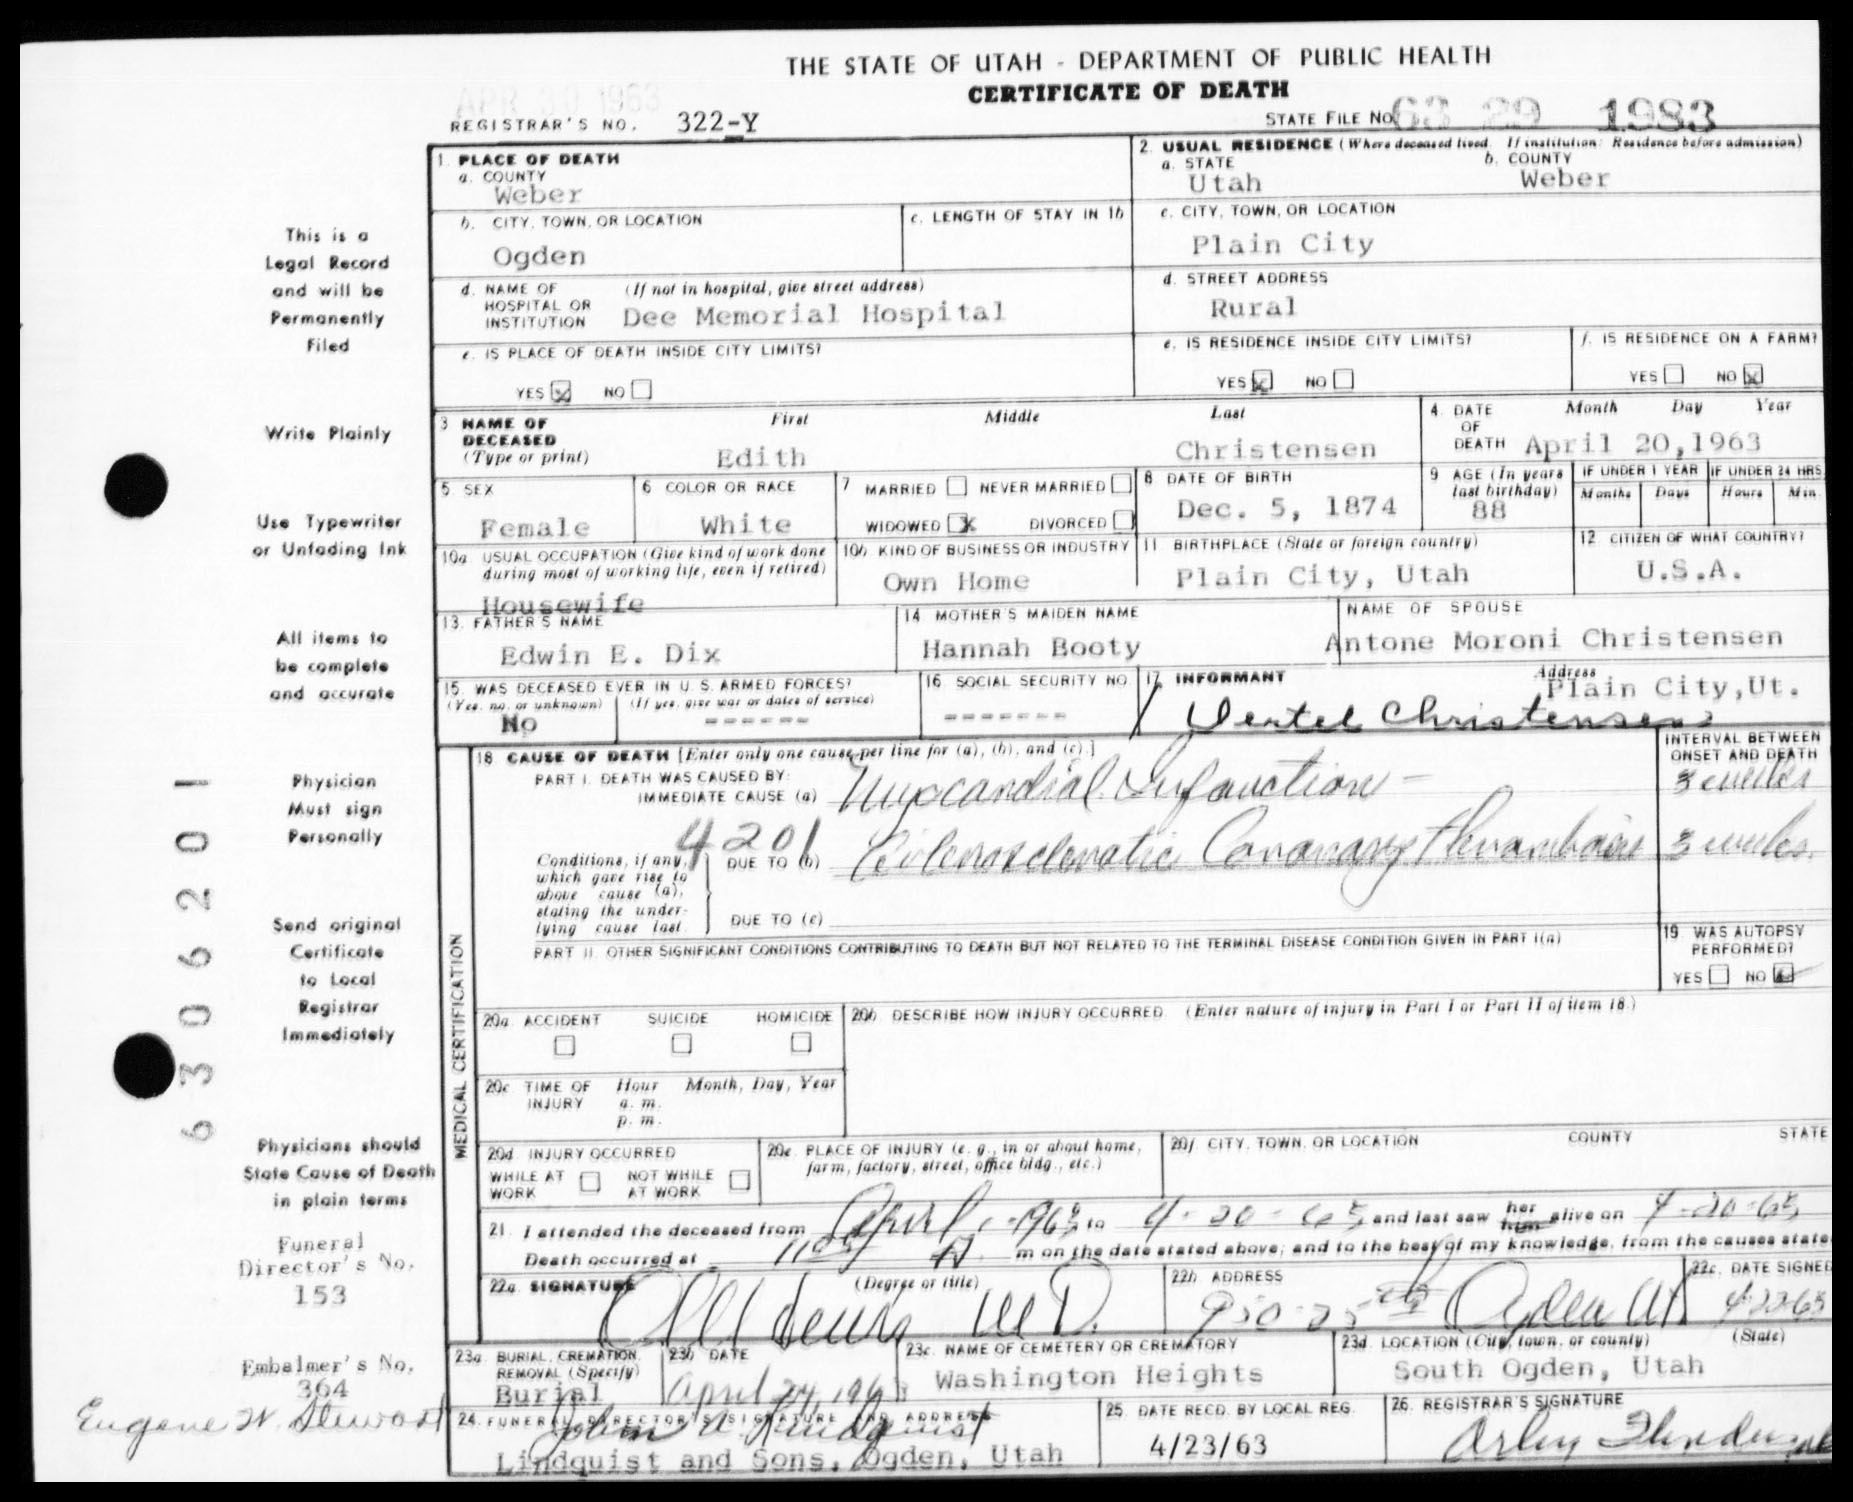 THE STATE OF UTAH - DEPARTMENT OF PUBLIC HEALTH
CERTIFICATE OF DEATH
APR 30 1963
REGISTRAR'S NO. 322-Y
STATE FILE NO. 63 29 1983
This is a
Legal Record
and will be
Permanently
Filed
Write Plainly
Use Typewriter
or Unfading Ink
All items to
be complete
and accurate
Physician
Must sign
Personally
Send original
Certificate
to Local
Registrar
Immediately
Physicians should
State Cause of Death
in plain terms
Funeral
Director's No.
153
Embalmer's No.
364
Eugene W. Stewart
6306201
1. PLACE OF DEATH
a. COUNTY
Weber
2. USUAL RESIDENCE (Where deceased lived. If institution: Residence before admission)
a. STATE
Utah
b. COUNTY
Weber
b. CITY, TOWN, OR LOCATION
Ogden
c. LENGTH OF STAY IN 1b
c. CITY, TOWN, OR LOCATION
Plain City
d. NAME OF HOSPITAL OR INSTITUTION (If not in hospital, give street address)
Dee Memorial Hospital
d. STREET ADDRESS
Rural
e. IS PLACE OF DEATH INSIDE CITY LIMITS?
YES x NO
e. IS RESIDENCE INSIDE CITY LIMITS?
YES x NO
f. IS RESIDENCE ON A FARM?
YES NO x
3 NAME OF DECEASED (Type or print)
First Middle Last
Edith Christensen
4. DATE OF DEATH
Month Day Year
April 20,1963
5 SEX
Female
6 COLOR OR RACE
White
7 MARRIED NEVER MARRIED
WIDOWED X DIVORCED
8 DATE OF BIRTH
Dec. 5, 1874
9 AGE (In years last birthday)
88
IF UNDER 1 YEAR
Months Days
IF UNDER 24 HRS.
Hours Min.
10a USUAL OCCUPATION (Give kind of work done during most of working life, even if retired)
Housewife
10b. KIND OF BUSINESS OR INDUSTRY
Own Home
11. BIRTHPLACE (State or foreign country)
Plain City, Utah
12 CITIZEN OF WHAT COUNTRY?
U.S.A.
13. FATHER'S NAME
Edwin E. Dix
14 MOTHER'S MAIDEN NAME
Hannah Booty
NAME OF SPOUSE
Antone Moroni Christensen
15. WAS DECEASED EVER IN U. S. ARMED FORCES?
(Yes, no, or unknown) (If yes, give war or dates of service)
No ------
16. SOCIAL SECURITY NO.
-------
17. INFORMANT
Address
Plain City,Ut.
Christensen
18 CAUSE OF DEATH [Enter only one cause per line for (a), (b), and (c).]
PART I. DEATH WAS CAUSED BY:
IMMEDIATE CAUSE (a) Myocardial Infarction -
INTERVAL BETWEEN ONSET AND DEATH
3 weeks
4201
Conditions, if any, which gave rise to above cause (a), stating the underlying cause last.
DUE TO (b) Arteriosclerotic Coronary thrombosis 3 weeks.
DUE TO (c)
PART II. OTHER SIGNIFICANT CONDITIONS CONTRIBUTING TO DEATH BUT NOT RELATED TO THE TERMINAL DISEASE CONDITION GIVEN IN PART I(a)
19. WAS AUTOPSY PERFORMED?
YES NO
MEDICAL CERTIFICATION
20a. ACCIDENT SUICIDE HOMICIDE
20b DESCRIBE HOW INJURY OCCURRED. (Enter nature of injury in Part I or Part II of item 18.)
20c TIME OF INJURY Hour Month, Day, Year
a. m.
p. m.
20d. INJURY OCCURRED
WHILE AT WORK NOT WHILE AT WORK
20e. PLACE OF INJURY (e. g., in or about home, farm, factory, street, office bldg., etc.)
20f. CITY, TOWN, OR LOCATION COUNTY STATE
21. I attended the deceased from April, 1963 to 4-20-63, and last saw her him alive on 4-20-63
Death occurred at A m on the date stated above; and to the best of my knowledge, from the causes state
22a. SIGNATURE (Degree or title)
M.D.
22b ADDRESS
950-25th Ogden Ut.
22c. DATE SIGNED
4-22-63
23a. BURIAL, CREMATION, REMOVAL (Specify)
Burial
23b DATE
April 24, 1963
23c. NAME OF CEMETERY OR CREMATORY
Washington Heights
23d. LOCATION (City, town, or county) (State)
South Ogden, Utah
24. FUNERAL DIRECTOR'S SIGNATURE AND ADDRESS
John A. Lindquist
Lindquist and Sons, Ogden, Utah
25. DATE RECD. BY LOCAL REG.
4/23/63
26. REGISTRAR'S SIGNATURE
Arley